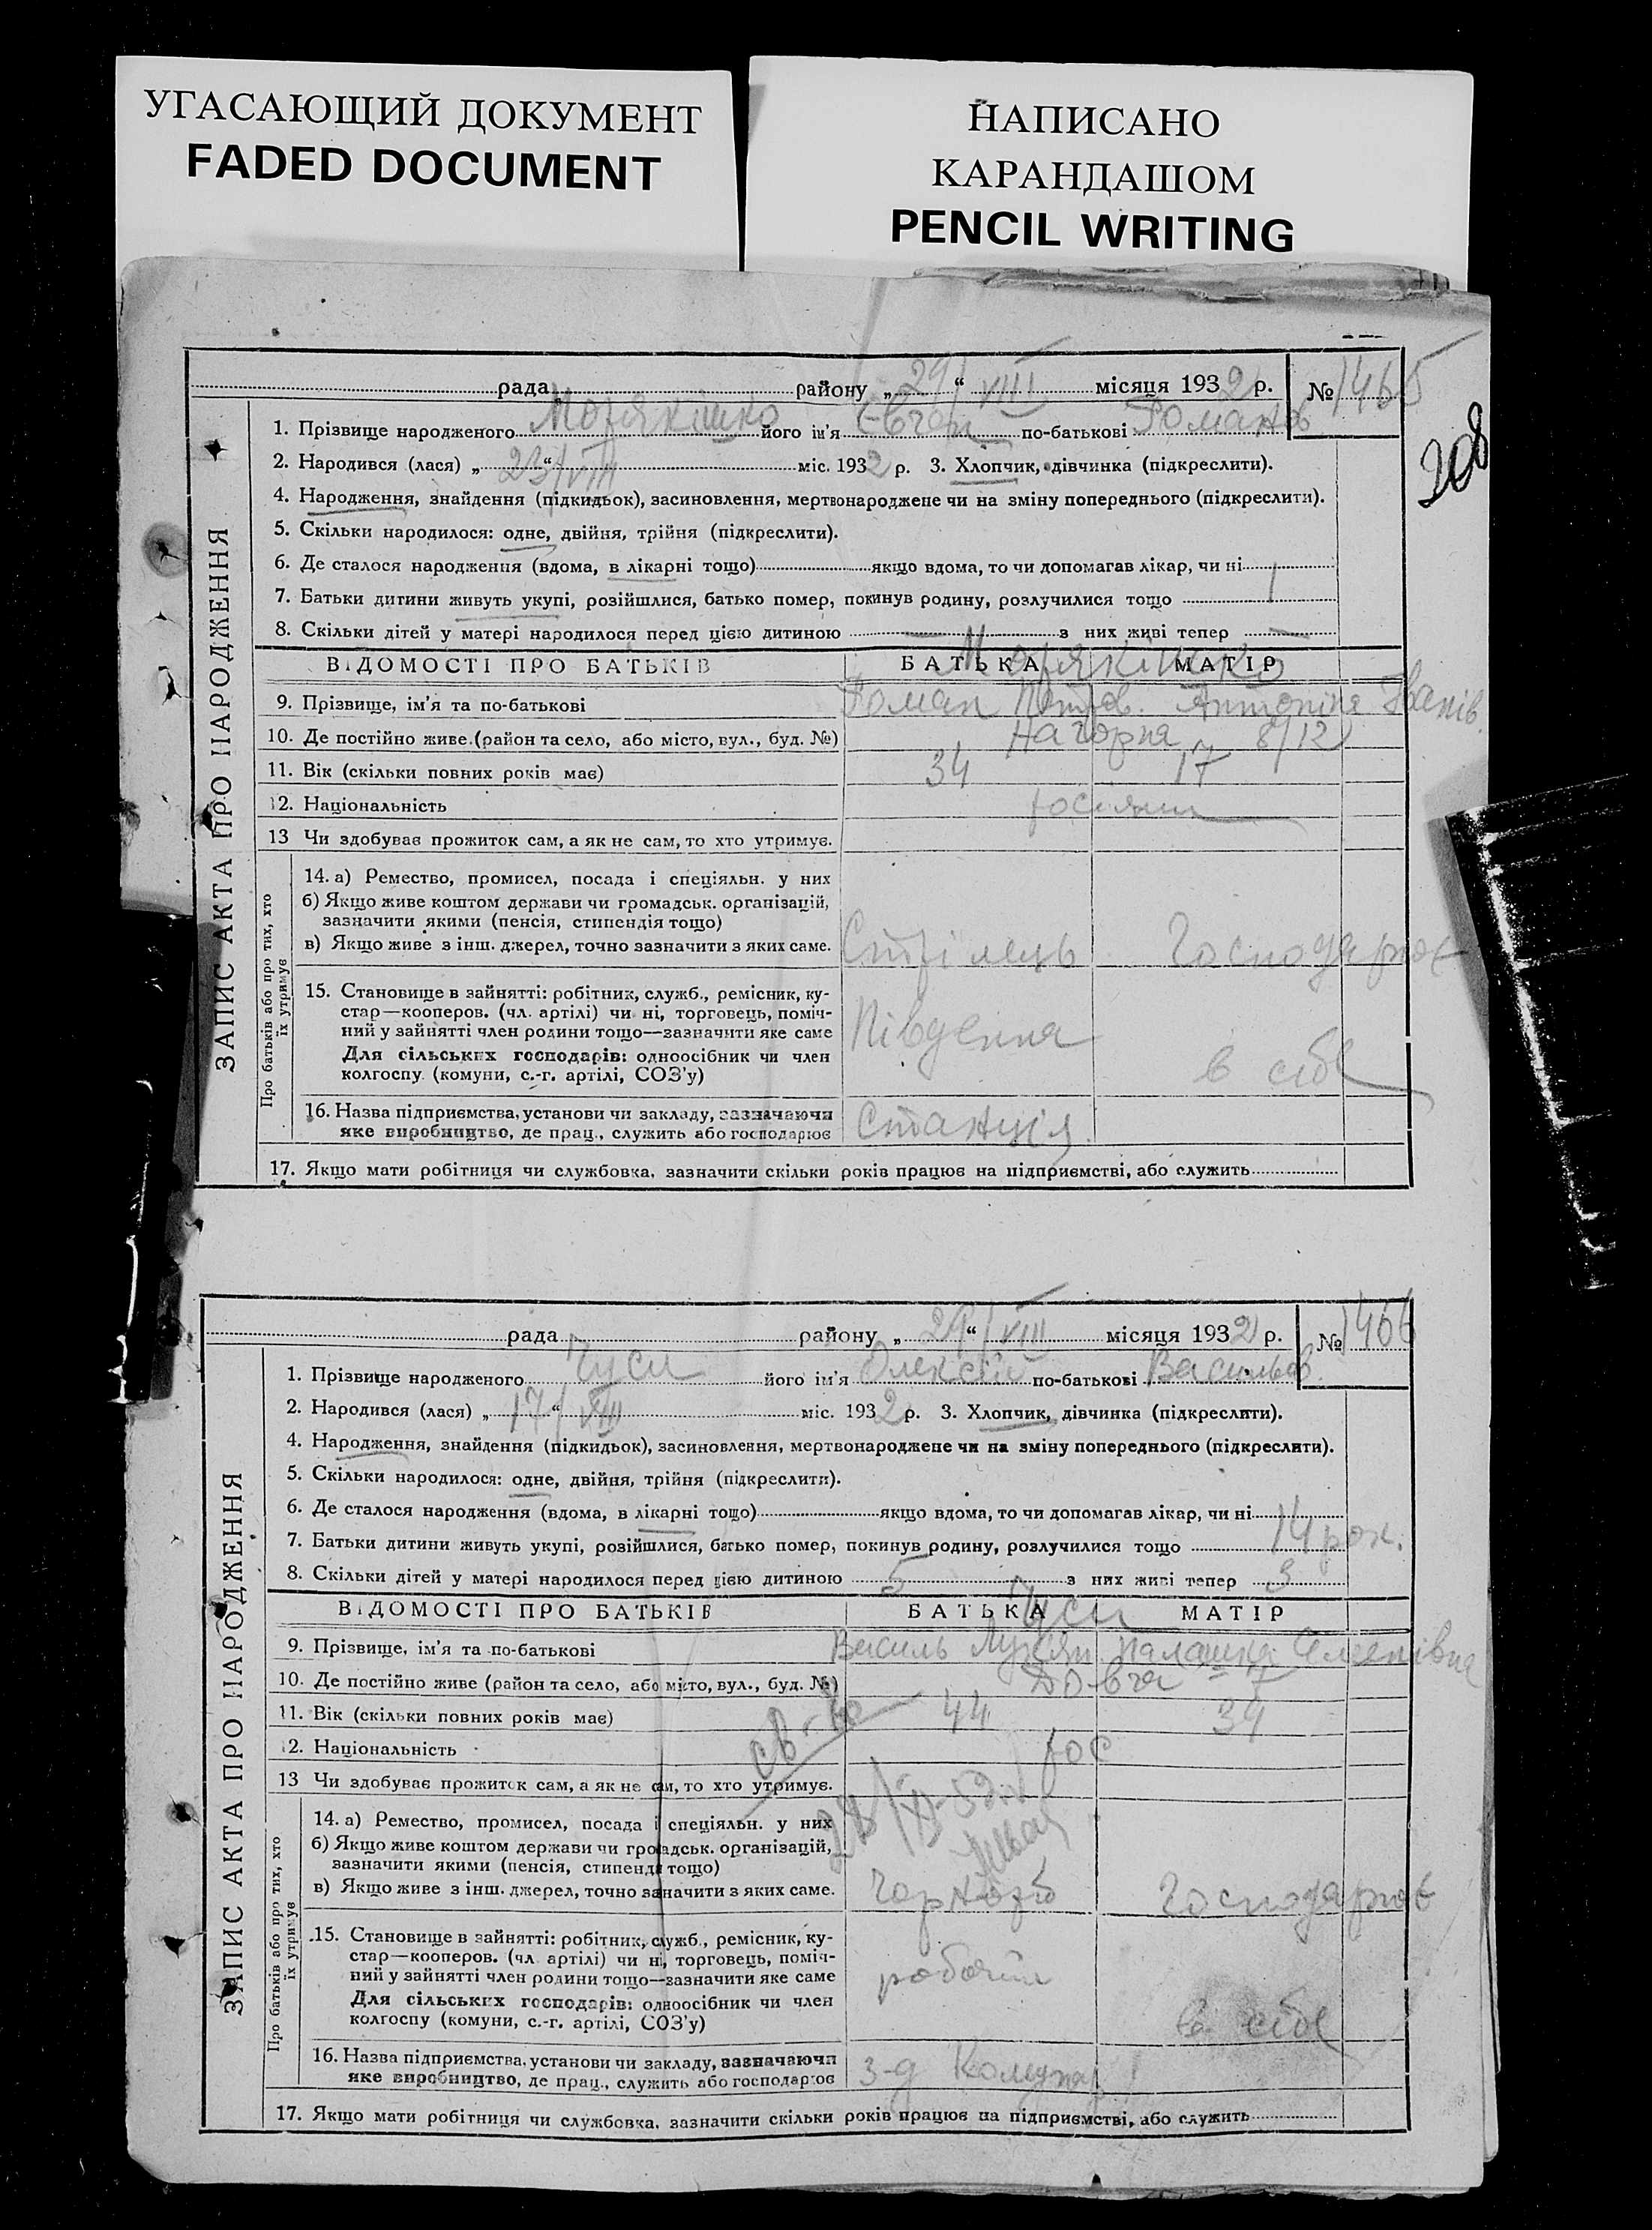 УГАСАЮЩИЙ ДОКУМЕНТ
FADED DOCUMENT
НАПИСАНО
КАРАНДАШОМ
PENCIL WRITING
рада району „ 29 “ VIII місяця 1932 р. № 1465
208
ЗАПИС АКТА ПРО НАРОДЖЕННЯ
1. Прізвище народженого Морякішко його ім'я Євген по-батькові Романов
2. Народився (лася) „ 23 “ VIII міс. 1932 р. 3. Хлопчик, дівчинка (підкреслити).
4. Народження, знайдення (підкидьок), засиновлення, мертвонароджене чи на зміну попереднього (підкреслити).
5. Скільки народилося: одне, двійня, трійня (підкреслити).
6. Де сталося народження (вдома, в лікарні тощо) якщо вдома, то чи допомагав лікар, чи ні
7. Батьки дитини живуть укупі, розійшлися, батько помер, покинув родину, розлучилися тощо 1
8. Скільки дітей у матері народилося перед цією дитиною — з них живі тепер —
ВІДОМОСТІ ПРО БАТЬКІВ БАТЬКА МАТІР
Морякішко
9. Прізвище, ім'я та по-батькові Роман Петров. Антоніна Іванів.
10. Де постійно живе (район та село, або місто, вул., буд. №) Нагорна 8/12
11. Вік (скільки повних років має) 34 17
12. Національність росіяни
13 Чи здобуває прожиток сам, а як не сам, то хто утримує.
Про батьків або про тих, хто їх утримує
14. а) Ремество, промисел, посада і спеціяльн. у них
б) Якщо живе коштом держави чи громадськ. організацій,
зазначити якими (пенсія, стипендія тощо)
в) Якщо живе з інш. джерел, точно зазначити з яких саме. Стрілець Господарює
15. Становище в зайнятті: робітник, служб., ремісник, ку-
стар—кооперов. (чл. артілі) чи ні, торговець, поміч-
ний у зайнятті член родини тощо—зазначити яке саме Південна
Для сільських господарів: одноосібник чи член
колгоспу (комуни, с.-г. артілі, СОЗ'у) в себе
16. Назва підприємства, установи чи закладу, зазначаючи
яке виробництво, де прац., служить або господарює Станція
17. Якщо мати робітниця чи службовка, зазначити скільки років працює на підприємстві, або служить
рада району „ 29 “ VIII місяця 1932 р. № 1466
ЗАПИС АКТА ПРО НАРОДЖЕННЯ
1. Прізвище народженого Чуси його ім'я Олексій по-батькові Васильов.
2. Народився (лася) „ 17 “ VIII міс. 1932 р. 3. Хлопчик, дівчинка (підкреслити).
4. Народження, знайдення (підкидьок), засиновлення, мертвонароджене чи на зміну попереднього (підкреслити).
5. Скільки народилося: одне, двійня, трійня (підкреслити).
6. Де сталося народження (вдома, в лікарні тощо) якщо вдома, то чи допомагав лікар, чи ні
7. Батьки дитини живуть укупі, розійшлися, батько помер, покинув родину, розлучилися тощо 14 рок.
8. Скільки дітей у матері народилося перед цією дитиною 5 з них живі тепер 3
ВІДОМОСТІ ПРО БАТЬКІВ БАТЬКА МАТІР
Чуси
9. Прізвище, ім'я та по-батькові Василь
10. Де постійно живе (район та село, або місто, вул., буд. №) 7
11. Вік (скільки повних років має) 44 34
12. Національність рос
13 Чи здобуває прожиток сам, а як не сам, то хто утримує.
св-во
Про батьків або про тих, хто їх утримує
14. а) Ремество, промисел, посада і спеціяльн. у них
б) Якщо живе коштом держави чи громадськ. організацій,
зазначити якими (пенсія, стипендія тощо)
в) Якщо живе з інш. джерел, точно зазначити з яких саме. Чорнороб Господарює
15. Становище в зайнятті: робітник, служб., ремісник, ку-
стар—кооперов. (чл. артілі) чи ні, торговець, поміч-
ний у зайнятті член родини тощо—зазначити яке саме робочий
Для сільських господарів: одноосібник чи член
колгоспу (комуни, с.-г. артілі, СОЗ'у) в себе
16. Назва підприємства, установи чи закладу, зазначаючи
яке виробництво, де прац., служить або господарює з-д Комунар
17. Якщо мати робітниця чи службовка, зазначити скільки років працює на підприємстві, або служить